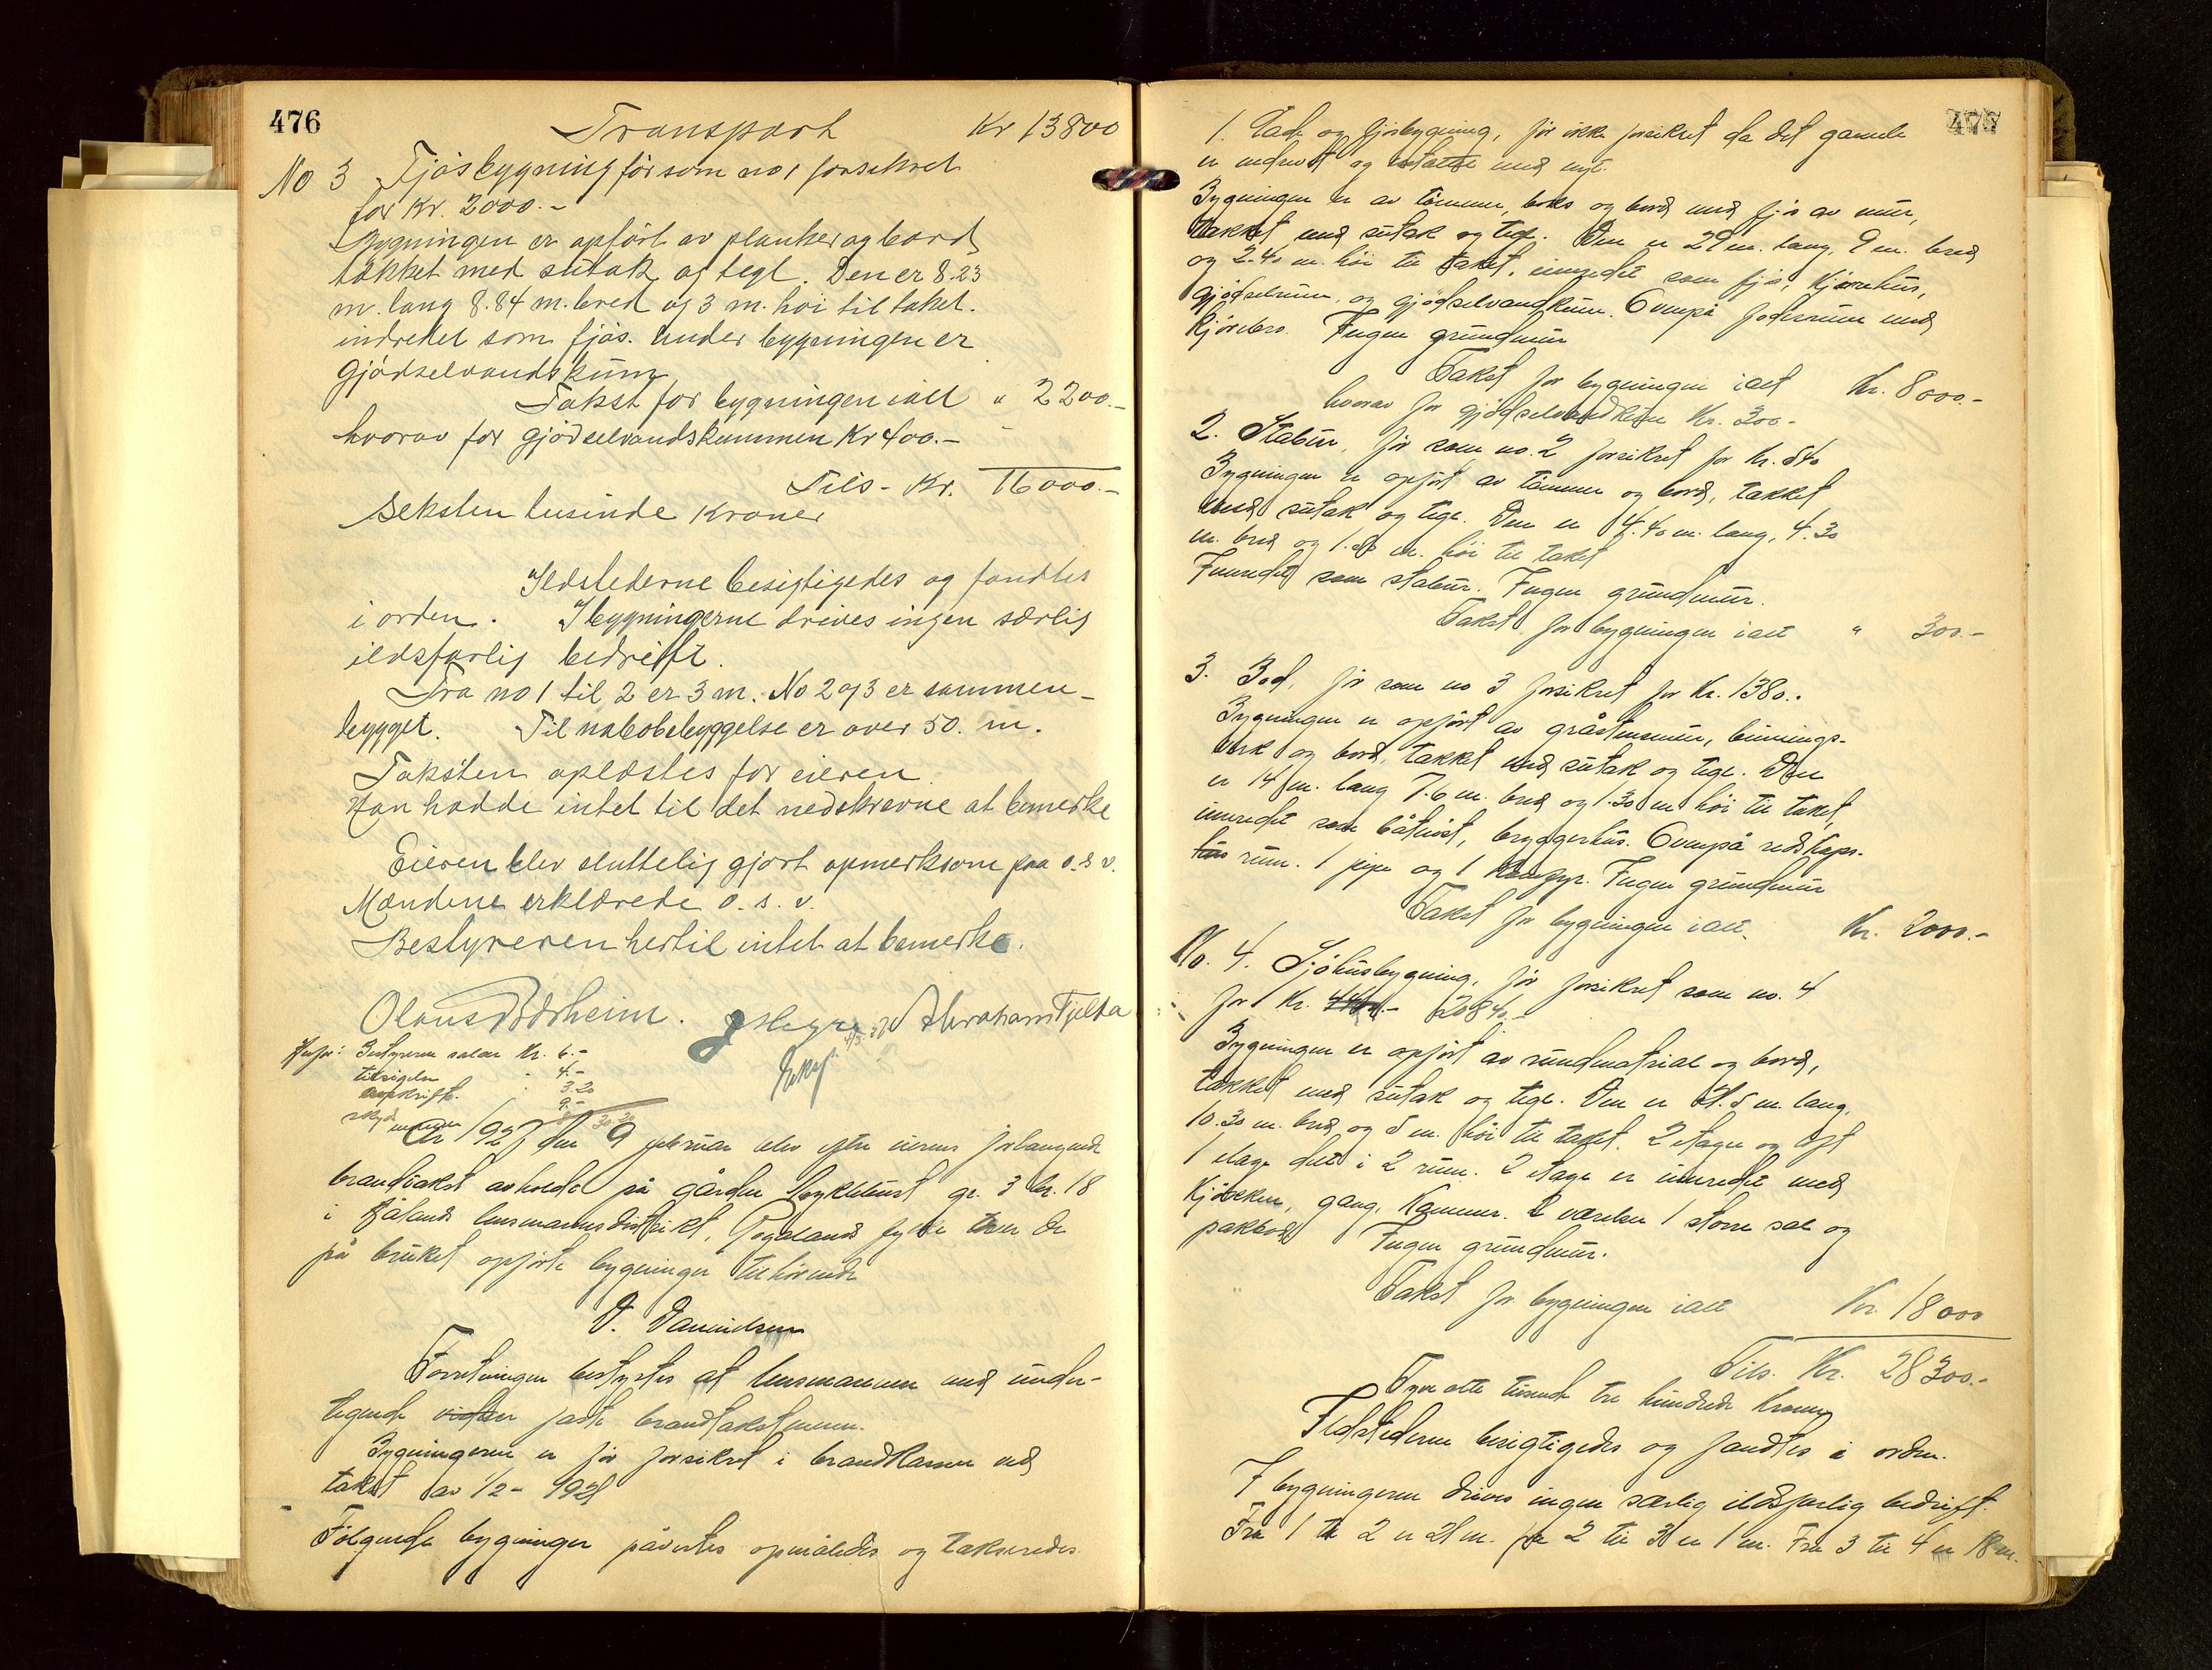 476
Transport Kr 13800
No 3 Fjøsbygning før som no 1 forsikret
for Kr. 2000.-
Bygningen er opført av planker og bord,
takket med sutak og tegl. Den er 8.23
m. lang 8.84 m. bred og 3 m. høi til taket.
indredet som fjøs. Under bygningen er
gjødselvandskum
Takst for bygningen ialt " 2200.-
hvorav for gjødselvandskummen Kr 400.-
Tils - Kr. 16000.-
Seksten tusinde Kroner
Ildstederne besigtigedes og fandtes
i orden. I bygningerne drives ingen særlig
ildsfarlig bedrift.
Fra no 1 til 2 er 3 m. No 2 og 3 er sammen-
bygget. Til nabobebyggelse er over 50. m.
Taksten oplæstes for eieren.
Han hadde intet til det nedskrevne at bemerke
Eieren blev sluttelig gjort opmerksom paa o.s.v.
Mændene erklærede o. s. v.
Bestyreren hertil intet at bemerke.
Olaus Abraham Fjelde
Bestyreren salær Kr. 6.-
tilsigelse " 4.-
avskrift. " 3.20
skyds 9.-
År 1927 den 9 februar blev efter eierens forlangende
brandtakst avholdt på gården gr. 3 br. 18
i lensmannsdistrikt, Rogaland fylke over de
på bruket opførte bygninger tilhørende
D. Danielsen
Forretningen bestyrtes af lensmannen med under-
tegnede faste brandtakstmenn.
Bygningerne er før forsikret i brandkassen ved
takst av 1/2 - 192
Følgende bygninger påvistes opmåledes og takseredes
477
1. Lade og fjøsbygning, før ikke forsikret da det gamle
er nedrevet og erstattet med nyt.
Bygningen er av tømmer, boks og bord med fjøs av mur,
takket med sutak og tegl. Den er 29 m. lang, 9 m. bred
og 2.40 m. høi til taket, innredet som fjøs, kjørehus,
gjødselrum, og gjødselvandkum. Ovenpå foderrum med
kjørebro. Ingen grundmur
Takst for bygningen ialt Kr. 8000.-
hvorav for gjødselvandkum Kr. 300.-
2. Stabur, før som no. 2 forsikret for Kr. 540
Bygningen er opført av tømmer og bord, takket
med sutak og tegl. Den er 4.40 m. lang, 4.30
m. bred og 1.80 m. høi til taket
Innredet som stabur. Ingen grundmur.
Takst for bygningen ialt " 300.-
3. Bod, før som no 3 forsikret for Kr. 1380.-
Bygningen er opført av gråstensmur, binnings-
verk og bord, takket med sutak og tegl. Den
er 14 m. lang 7.6 m. bred og 1.30 m høi til taket,
innredet som båtnøst, bryggerhus. Ovenpå redskaps-
rum. 1 pipe og 1 Ingen grundmur
Takst for bygningen ialt. Kr. 2000.-
No. 4. Sjøhusbygning, før forsikret som no. 4
for Kr. 2080.-
Bygningen er opført av rundmatrial og bord,
takket med sutak og tegl. Den er m. lang,
10.30 m. bred, og 5 m. høi til taket. 2 etager og loft
1 etage delt i 2 rum. 2 etage er innredet med
kjøkken, gang, kammer. 2 værelser 1 større sal og
pakbod Ingen grundmur.
Takst for bygningen ialt Kr. 18000
Tils. Kr. 28300.-
Tyve otte tusend tre hundrede Kroner
Ildstederne besigtigedes og fandtes i orden.
I bygningerne drives ingen særlig ildsfarlig bedrift.
Fra 1 til 2 er 21 m. fra 2 til 3 er 1 m. Fra 3 til 4 er 18 m.